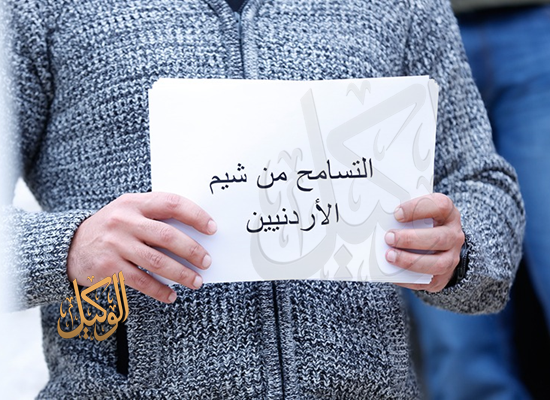 التسامح من شيم
الأردنيين
الوكيل
الوكيل